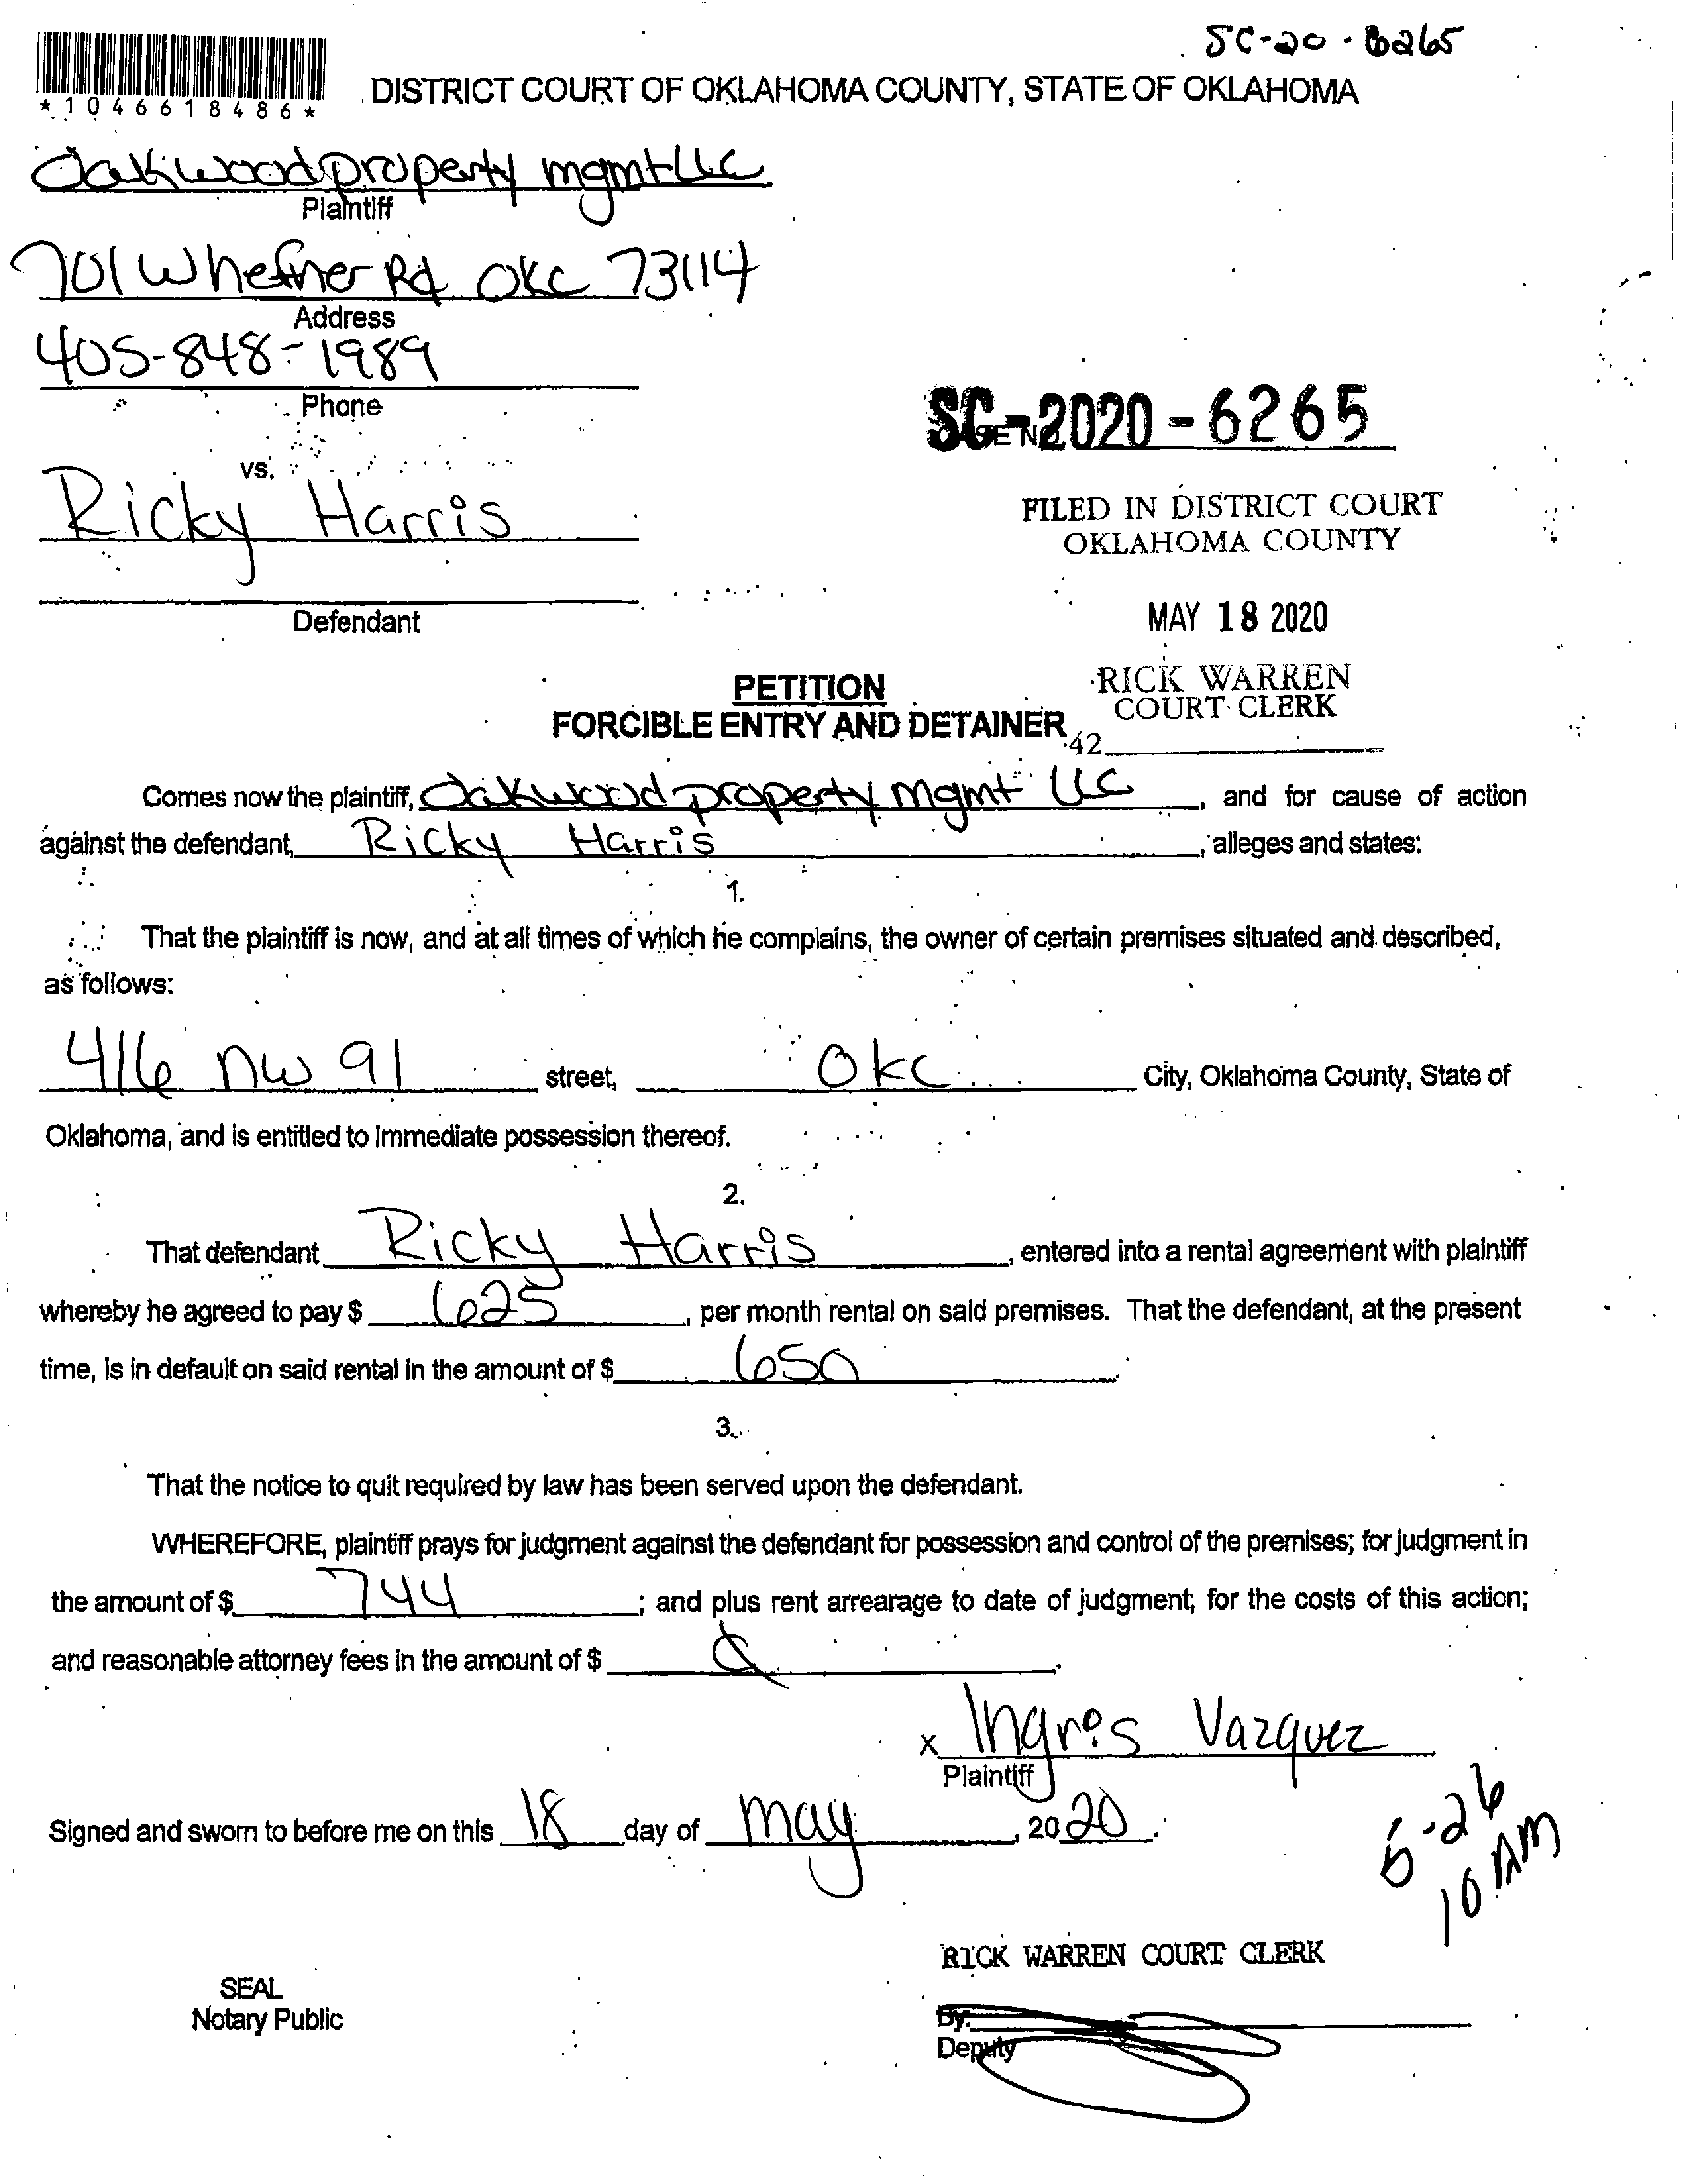 SC-20-6265
*1046618486*
DISTRICT COURT OF OKLAHOMA COUNTY, STATE OF OKLAHOMA
Oakwood property mgmt LLC
Plaintiff
701 W hefner Rd OKC 73114
Address
405-848-1989
Phone
SC-2020-6265
vs.
Ricky Harris
FILED IN DISTRICT COURT
OKLAHOMA COUNTY
Defendant
MAY 18 2020
RICK WARREN
COURT CLERK
42
PETITION
FORCIBLE ENTRY AND DETAINER
Comes now the plaintiff, Oakwood property mgmt LLC, and for cause of action
against the defendant, Ricky Harris, alleges and states:
1.
That the plaintiff is now, and at all times of which he complains, the owner of certain premises situated and described,
as follows:
416 NW 91 street, OKC City, Oklahoma County, State of
Oklahoma, and is entitled to immediate possession thereof.
2.
That defendant Ricky Harris, entered into a rental agreement with plaintiff
whereby he agreed to pay $ 625, per month rental on said premises. That the defendant, at the present
time, is in default on said rental in the amount of $ 650.
3.
That the notice to quit required by law has been served upon the defendant.
WHEREFORE, plaintiff prays for judgment against the defendant for possession and control of the premises; for judgment in
the amount of $ 744; and plus rent arrearage to date of judgment; for the costs of this action;
and reasonable attorney fees in the amount of $
x Ingris Vazquez
Plaintiff
Signed and sworn to before me on this 18 day of May, 2020.
5-26
10 AM
RICK WARREN COURT CLERK
SEAL
Notary Public
By:
Deputy